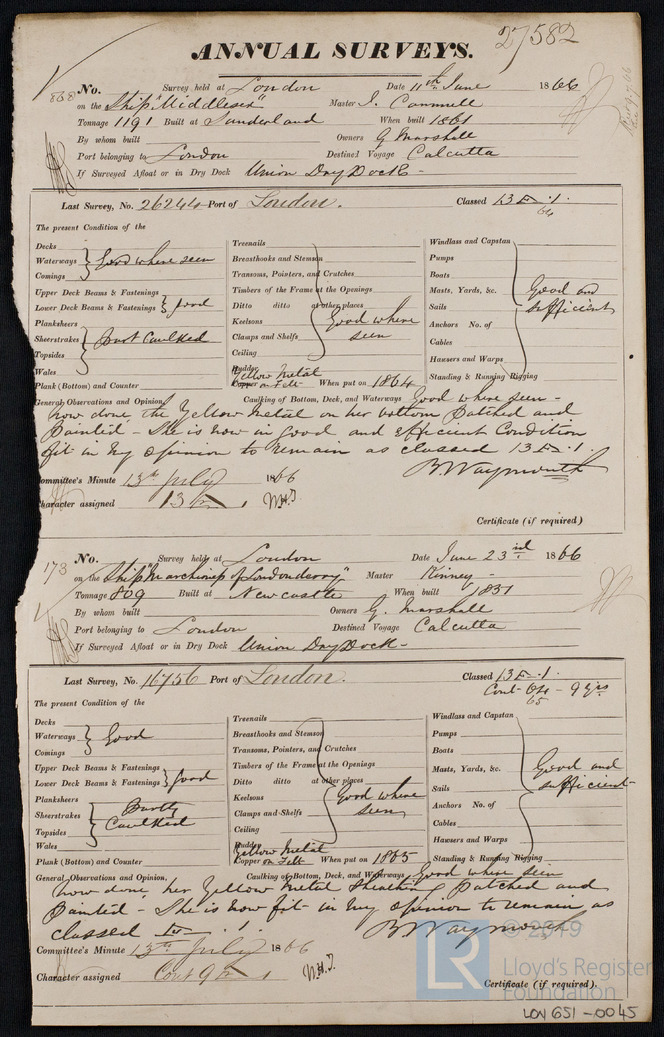 27582
ANNUAL SURVEYS.
868 No. Survey held at London Date 11th June 1866
on the Ship "Middlesex" Master J. Cammell
Tonnage 1191 Built at Sunderland When built 1861
By whom built Owners G Marshall
Port belonging to London Destined Voyage Calcutta
If Surveyed Afloat or in Dry Dock Union Dry Dock -
Last Survey, No. 26244 Port of London. Classed 13 . 1.
64
The present Condition of the
Decks
Waterways Good where seen
Comings
Upper Deck Beams & Fastenings
Lower Deck Beams & Fastenings good
Planksheers
Sheerstrakes Part Caulked
Topsides
Wales
Plank (Bottom) and Counter
Treenails
Breasthooks and Stemson
Transoms, Pointers, and Crutches
Timbers of the Frame at the Openings
Ditto ditto at other places
Keelsons Good where
Clamps and Shelfs seen
Ceiling
Rudder
Yellow Metal
Copper on Felt When put on 1864
Windlass and Capstan
Pumps
Boats
Masts, Yards, &c. Good and
Sails sufficient
Anchors No. of
Cables
Hawsers and Warps
Standing & Running Rigging
General Observations and Opinion, Caulking of Bottom, Deck, and Waterways Good where seen -
now done the Yellow Metal on her bottom Patched and
Painted - She is now in good and efficient Condition
fit in my opinion to remain as classed 13 . 1.
B. Waymouth
Committee's Minute 13th July 1866
Character assigned 13 1
Certificate (if required)
173 No. Survey held at London Date June 23rd 1866
on the Ship "Marchioness of Londonderry" Master Kinney -
Tonnage 809 Built at Newcastle When built 1851
By whom built Owners G. Marshall
Port belonging to London Destined Voyage Calcutta
If Surveyed Afloat or in Dry Dock Union Dry Dock -
Last Survey, No. 16756 Port of London. Classed 13 . 1.
Cont 64 - 9 yrs
65
The present Condition of the
Decks
Waterways Good
Comings
Upper Deck Beams & Fastenings
Lower Deck Beams & Fastenings good
Planksheers
Sheerstrakes Partly
Topsides Caulked
Wales
Plank (Bottom) and Counter
Treenails
Breasthooks and Stemson
Transoms, Pointers, and Crutches
Timbers of the Frame at the Openings
Ditto ditto at other places
Keelsons Good where
Clamps and Shelfs seen
Ceiling
Rudder
Yellow Metal
Copper on Felt When put on 1865
Windlass and Capstan
Pumps
Boats
Masts, Yards, &c. Good and
Sails sufficient
Anchors No. of
Cables
Hawsers and Warps
Standing & Running Rigging
General Observations and Opinion, Caulking of Bottom, Deck, and Waterways Good where seen
now done her Yellow Metal Sheathing Patched and
Painted - She is now fit in my opinion to remain as
classed . 1.
B Waymouth
Committee's Minute 13th July 1866
Character assigned Cont 9 1
Certificate (if required).
© 2019
LR Lloyd's Register
Foundation
LON 651 - 0045